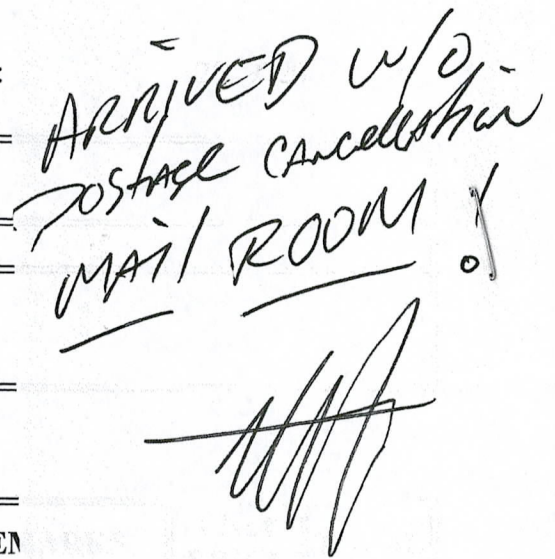 ARRIVED w/o
POSTAGE CANCELLATION
MAIL ROOM !
EN